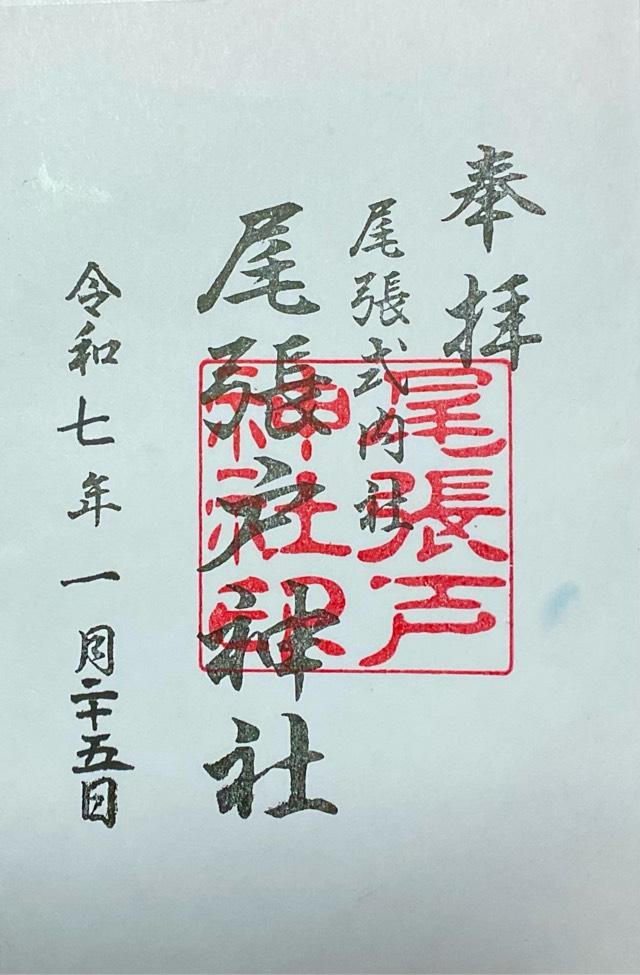 奉拝
尾張式内社
尾張戸神社
令和七年一月二十五日
尾張戸
神社印